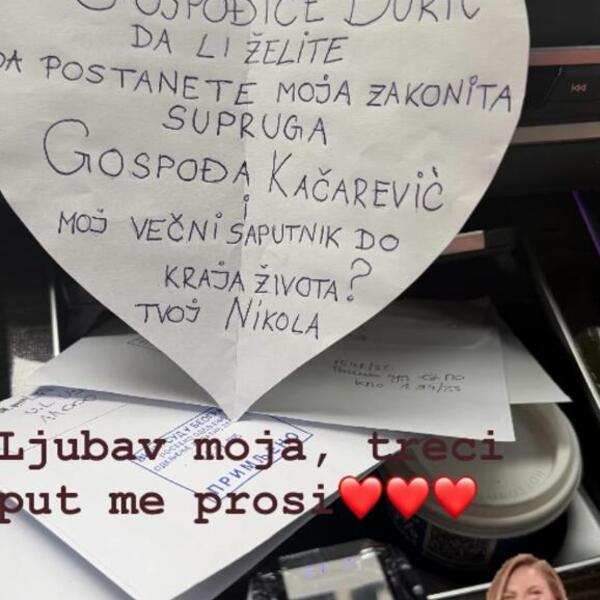 GOSPOĐICE ĐURIĆ
DA LI ŽELITE
DA POSTANETE MOJA ZAKONITA
SUPRUGA
GOSPOĐA KAČAREVIĆ
i
MOJ VEČNI SAPUTNIK DO
KRAJA ŽIVOTA?
TVOJ NIKOLA
ПРИМЉЕНО
Ljubav moja, treci
put me prosi❤️❤️❤️